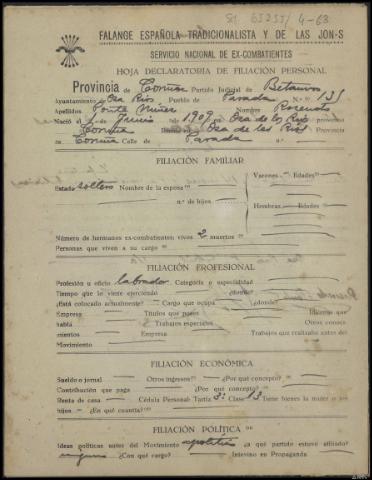 81 65255/4-68
FALANGE ESPAÑOLA TRADICIONALISTA Y DE LAS JON-S
SERVICIO NACIONAL DE EX-COMBATIENTES
HOJA DECLARATORIA DE FILIACIÓN PERSONAL
Provincia de Coruña Partido Judicial de Betanzos
Ayuntamiento Oza Ríos Pueblo de Parada N.º 135
Apellidos Nombre
Nació el 1 Junio de 1909 en Oza de los Ríos provincia
Coruña Oza de los Ríos
Coruña Calle de Parada
FILIACIÓN FAMILIAR
Estado soltero Nombre de la esposa Varones Edades
n.º de hijos
Hembras Edades
Número de hermanos ex-combatientes: vivos 2 muertos
Personas que viven a su cargo
FILIACIÓN PROFESIONAL
Profesión u oficio labrador Categoría o especialidad
Tiempo que lo viene ejerciendo ¿dónde?
¿Está colocado actualmente? Cargo que ocupa ¿dónde?
Empresa Títulos que posee Idiomas que
habla Trabajos especiales Otros conoci-
mientos Empresa Trabajos que realizaba antes del
Movimiento
FILIACIÓN ECONÓMICA
Sueldo o jornal Otros ingresos ¿Por qué concepto?
Contribución que paga ¿Por qué concepto?
Renta de casa Cédula Personal: Tarifa 3ª Clase 13 Tiene bienes la mujer o los
hijos ¿En qué cuantía?
FILIACIÓN POLÍTICA
Ideas políticas antes del Movimiento apolítico ¿a qué partido estuvo afiliado?
ninguno ¿Con qué cargo? Intervino en Propaganda